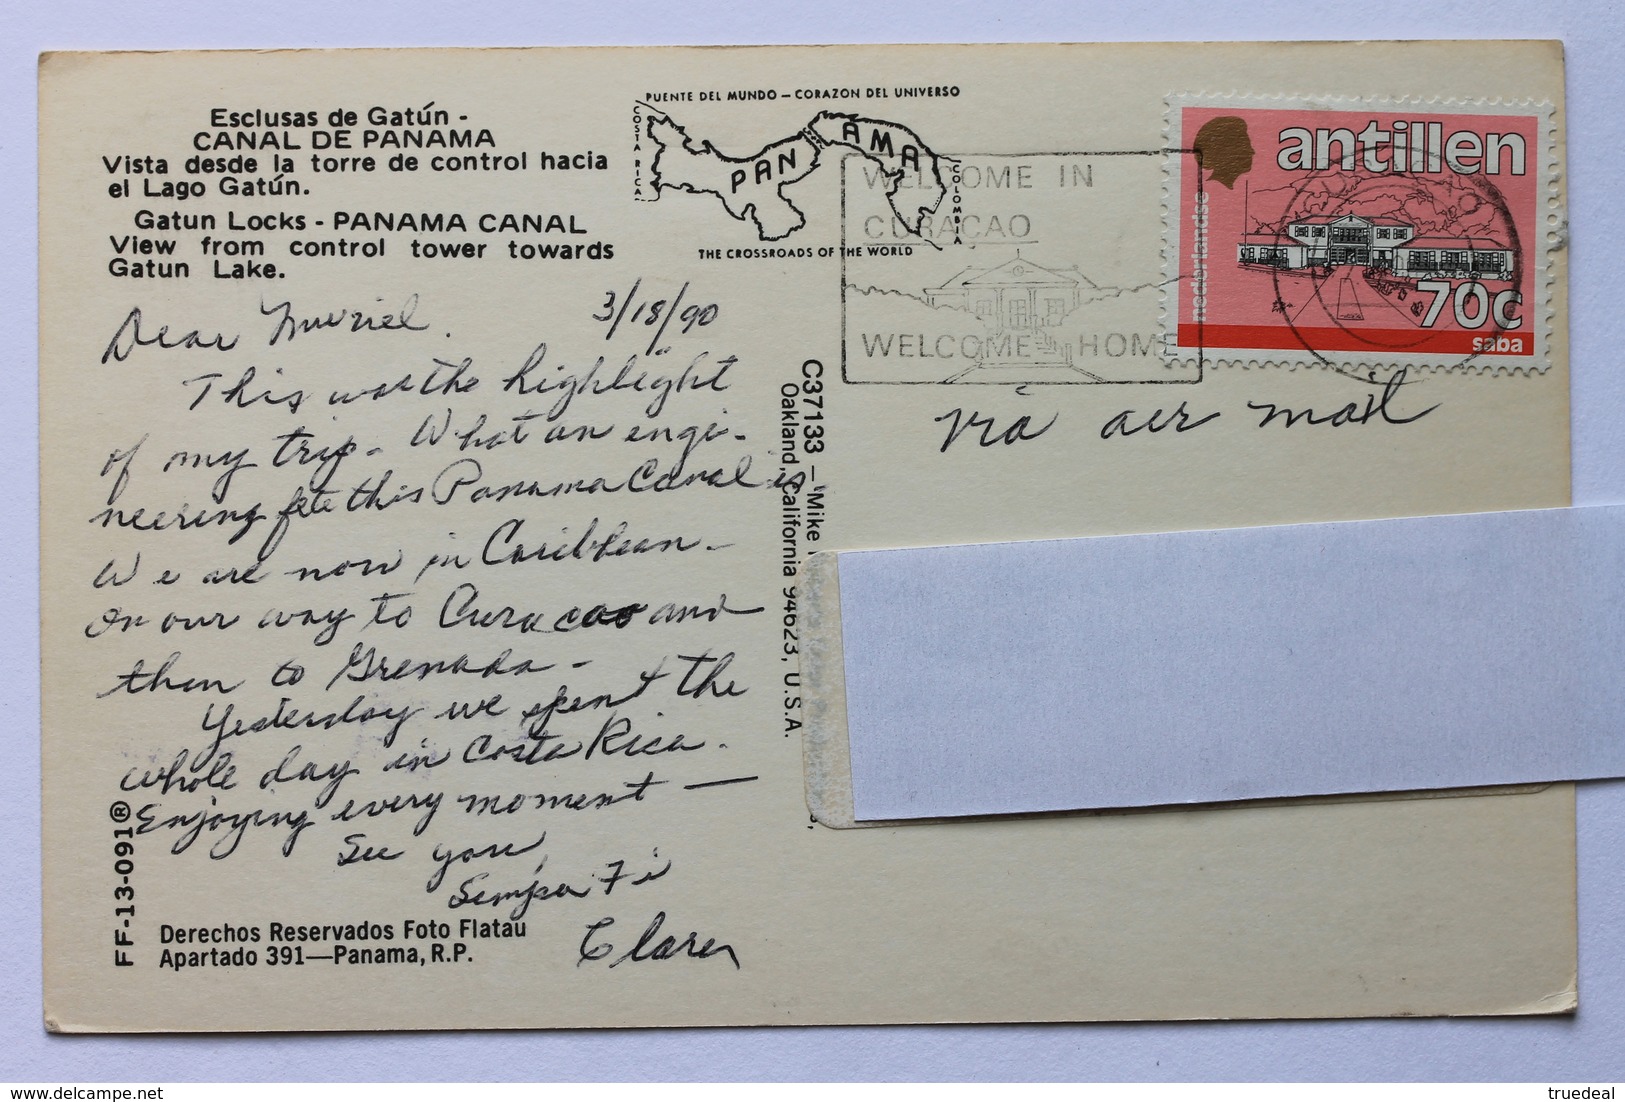 Esclusas de Gatún -
CANAL DE PANAMA
Vista desde la torre de control hacia
el Lago Gatún.
Gatun Locks - PANAMA CANAL
View from control tower towards
Gatun Lake.
PUENTE DEL MUNDO – CORAZON DEL UNIVERSO
COSTA RICA
PANAMA
COLOMBIA
THE CROSSROADS OF THE WORLD
WELCOME IN
CURAÇAO
WELCOME HOME
antillen
nederlandse
70c
saba
via air mail
Dear Muriel. 3/18/90
This was the highlight
of my trip. What an engi-
neering fete this Panama Canal is
We are now in Caribbean -
On our way to Curacao and
then to Grenada -
Yesterday we spent the
whole day in Costa Rica.
Enjoying every moment —
See you,
Sempa Fi
Clare
C37133 – Mike
Oakland, California 94623, U.S.A.
FF-13-091®
Derechos Reservados Foto Flatau
Apartado 391—Panama, R.P.
www.delcampe.net
truedeal